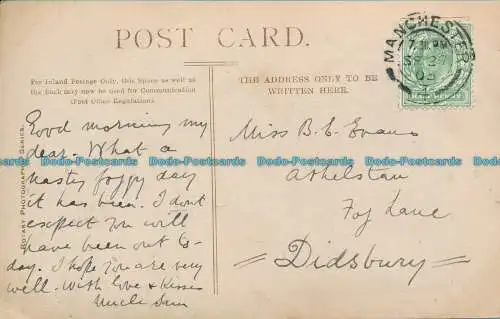 POST CARD.
For Inland Postage Only, this Space as well as
the back may now be used for Communication
(Post Office Regulation).
THE ADDRESS ONLY TO BE
WRITTEN HERE.
Good morning my
dear. What a
nasty foggy day
it has been. I dont
expect you will
have been out to-
day. I hope you are very
well. With love & kisses
Uncle
Miss B. E. Evans
Athelstan
Fog Lane
Didsbury
ROTARY PHOTOGRAPHIC SERIES.
MANCHESTER
7. PM
SP 27
05
HALFPENNY
Postcards
Postcards
Postcards
Postcards
Postcards
Postcards